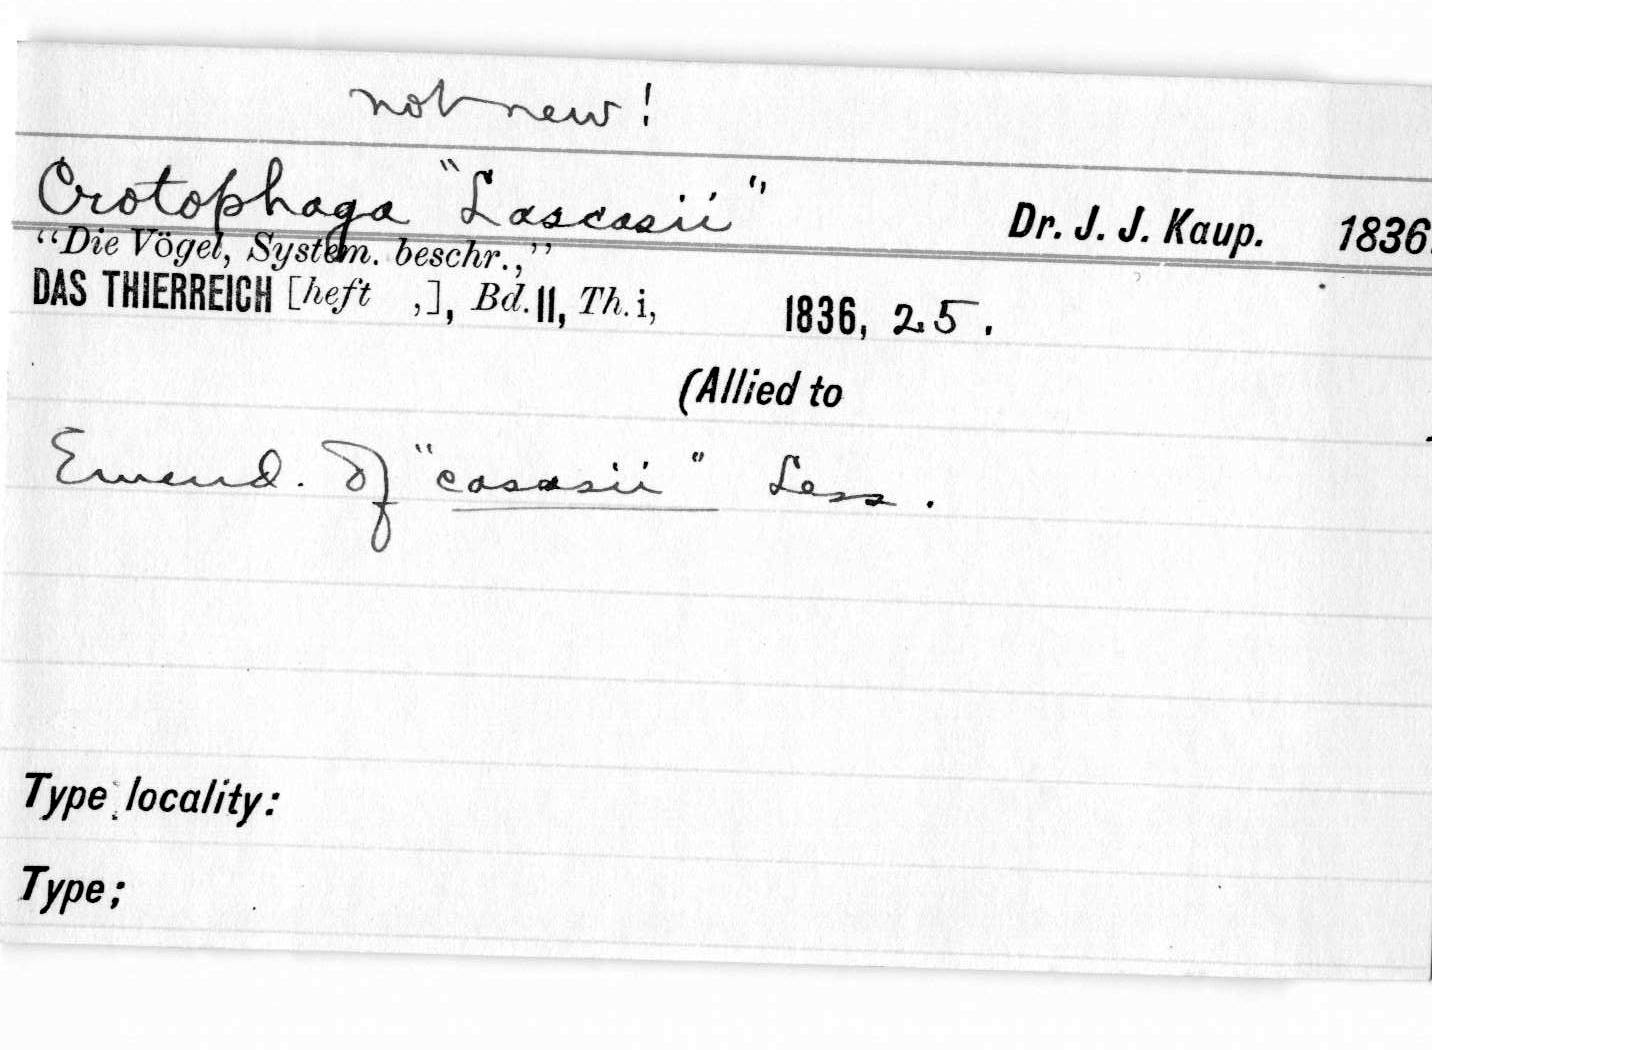 not new!
Crotophaga "Lascasii" Dr. J. J. Kaup. 1836.
"Die Vögel, System. beschr.,"
DAS THIERREICH [heft ,], Bd. II, Th. i, 1836, 25.
(Allied to
Emend. Of "casasii" Less.
Type locality:
Type;